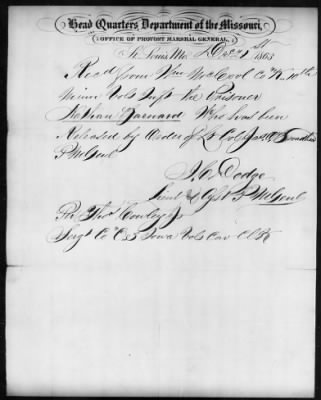 Head Quarters Department of the Missouri,
OFFICE OF PROVOST MARSHAL GENERAL,
St. Louis, Mo. Dec 1st 1863
Recd from Wm McCool Co K 10th
Minn Vols Inft the Prisoner
Nathan Barnard Who has been
Released by Order of Lt Col Jas O Broadhead
P M Genl
J. C. Dodge
Lieut & Asst P M Genl
Per Thos Cowley Jr
Sergt Co C 3 Iowa Vols Cav Clk